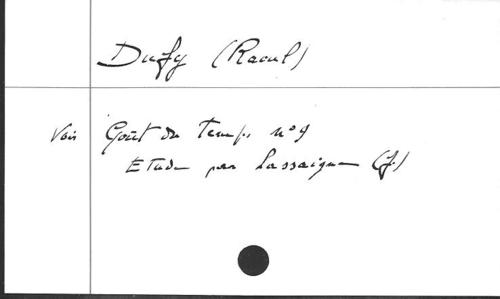 Dufy (Raoul)
Voir Goût du Temps n°9
Etude par Lassaigne (J.)